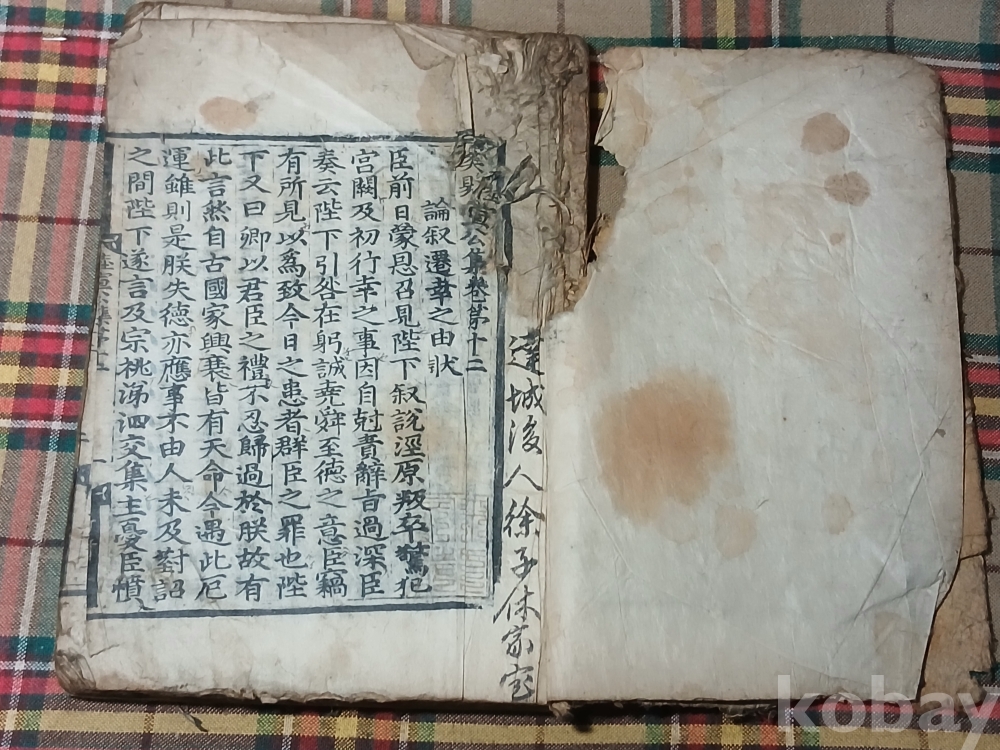 達城後人徐子休家宝
宣公集卷第十二
論叙遷幸之由狀
臣前日蒙恩召見陛下叙說涇原叛卒驚犯
宮闕及初行幸之事因自尅責辭旨過深臣
奏云陛下引咎在躬誠堯舜至德之意臣竊
有所見以爲致今日之患者群臣之罪也陛
下又曰卿以君臣之禮不忍歸過於朕故有
此言然自古國家興衰皆有天命今遇此厄
運雖則是朕失德亦應事不由人未及對詔
之間陛下遂言及宗祧涕泗交集主憂臣憤
kobay